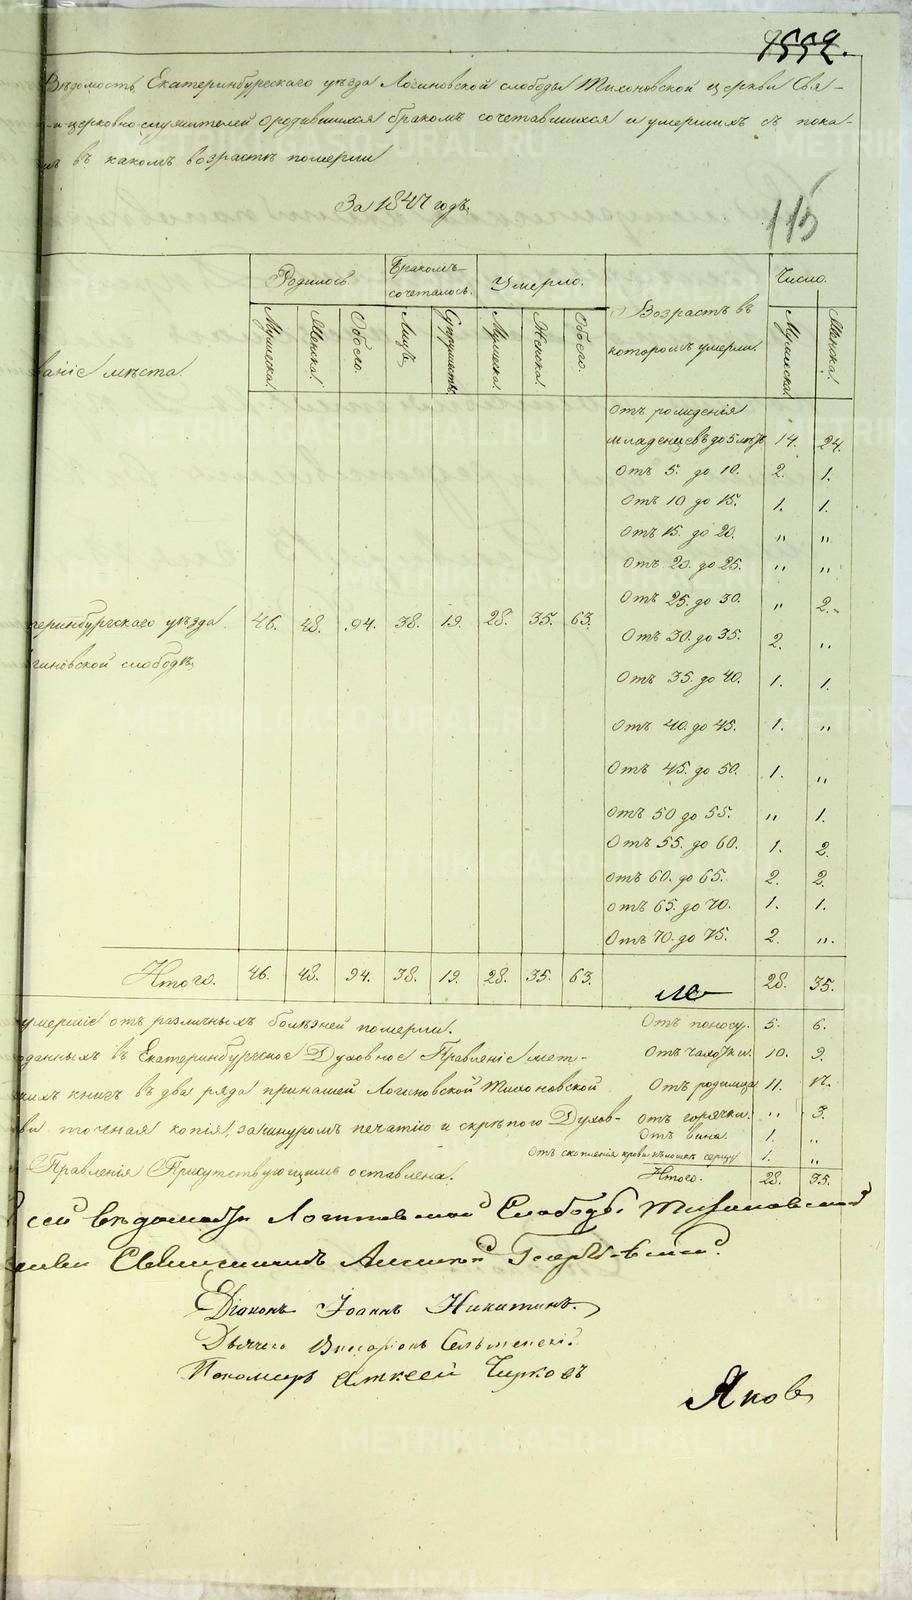 1552.
Вѣдомость Екатеринбургскаго уѣзда Логиновской слободы Тихоновской церкви Свя-
-но церковно-служителей о родившихся бракомъ сочетавшихся и умершихъ съ пока-
въ какомъ возрастѣ померли
За 1847 годъ.
115
ваніе мѣста.
Родилось. Бракомъ сочеталось. Умерло. Возрастъ въ которомъ умерли. Число.
Мужеска. Женска. Обоего. Лицъ. Супружествъ. Мужеска. Женска. Обоего. Мужеска. Женска.
Отъ рожденія
младенцевъ до 5 лѣтъ 14. 24.
Отъ 5. до 10. 2. 1.
Отъ 10 до 15. 1. 1.
Отъ 15. до 20. " "
Отъ 20. до 25. " "
Отъ 25. до 30. " 2.
теринбургскаго уѣзда. 46. 48. 94. 38. 19. 28. 35. 63.
Отъ 30. до 35. 2. "
гиновской слободѣ
Отъ 35. до 40. 1. 1.
Отъ 40. до 45. 1. "
Отъ 45. до 50. 1. "
Отъ 50 до 55. " 1.
Отъ 55. до 60. 1. 2.
Отъ 60. до 65. 2. 2.
Отъ 65. до 70. 1. 1.
Отъ 70. до 75. 2. "
Итого. 46. 48. 94. 38. 19. 28. 35. 63. 28. 35.
умершіе отъ различныхъ болѣзней померли. Отъ поносу. 5. 6.
оданныхъ въ Екатеринбургское Духовное Правленіе мет- Отъ чахотки. 10. 9.
кихъ книгъ въ два ряда при нашей Логиновской Тихоновской Отъ родимца 11. 17.
ви точная копія, за шнуромъ печатію и скрѣпою Духов- отъ горячки. " 3.
Отъ вина. 1. "
Отъ скопленія крови 1. "
Правленія Присутствующимъ оставлена. Итого. 28. 35.
сей вѣдомости Логиновской Слободы Тихоновской
Священникъ Алексѣй
Діаконъ Іоаннъ Никитинъ.
Дьячекъ
Пономарь Алексѣй Чирковъ
Яковъ
METRIKI.GASO-URAL.RU